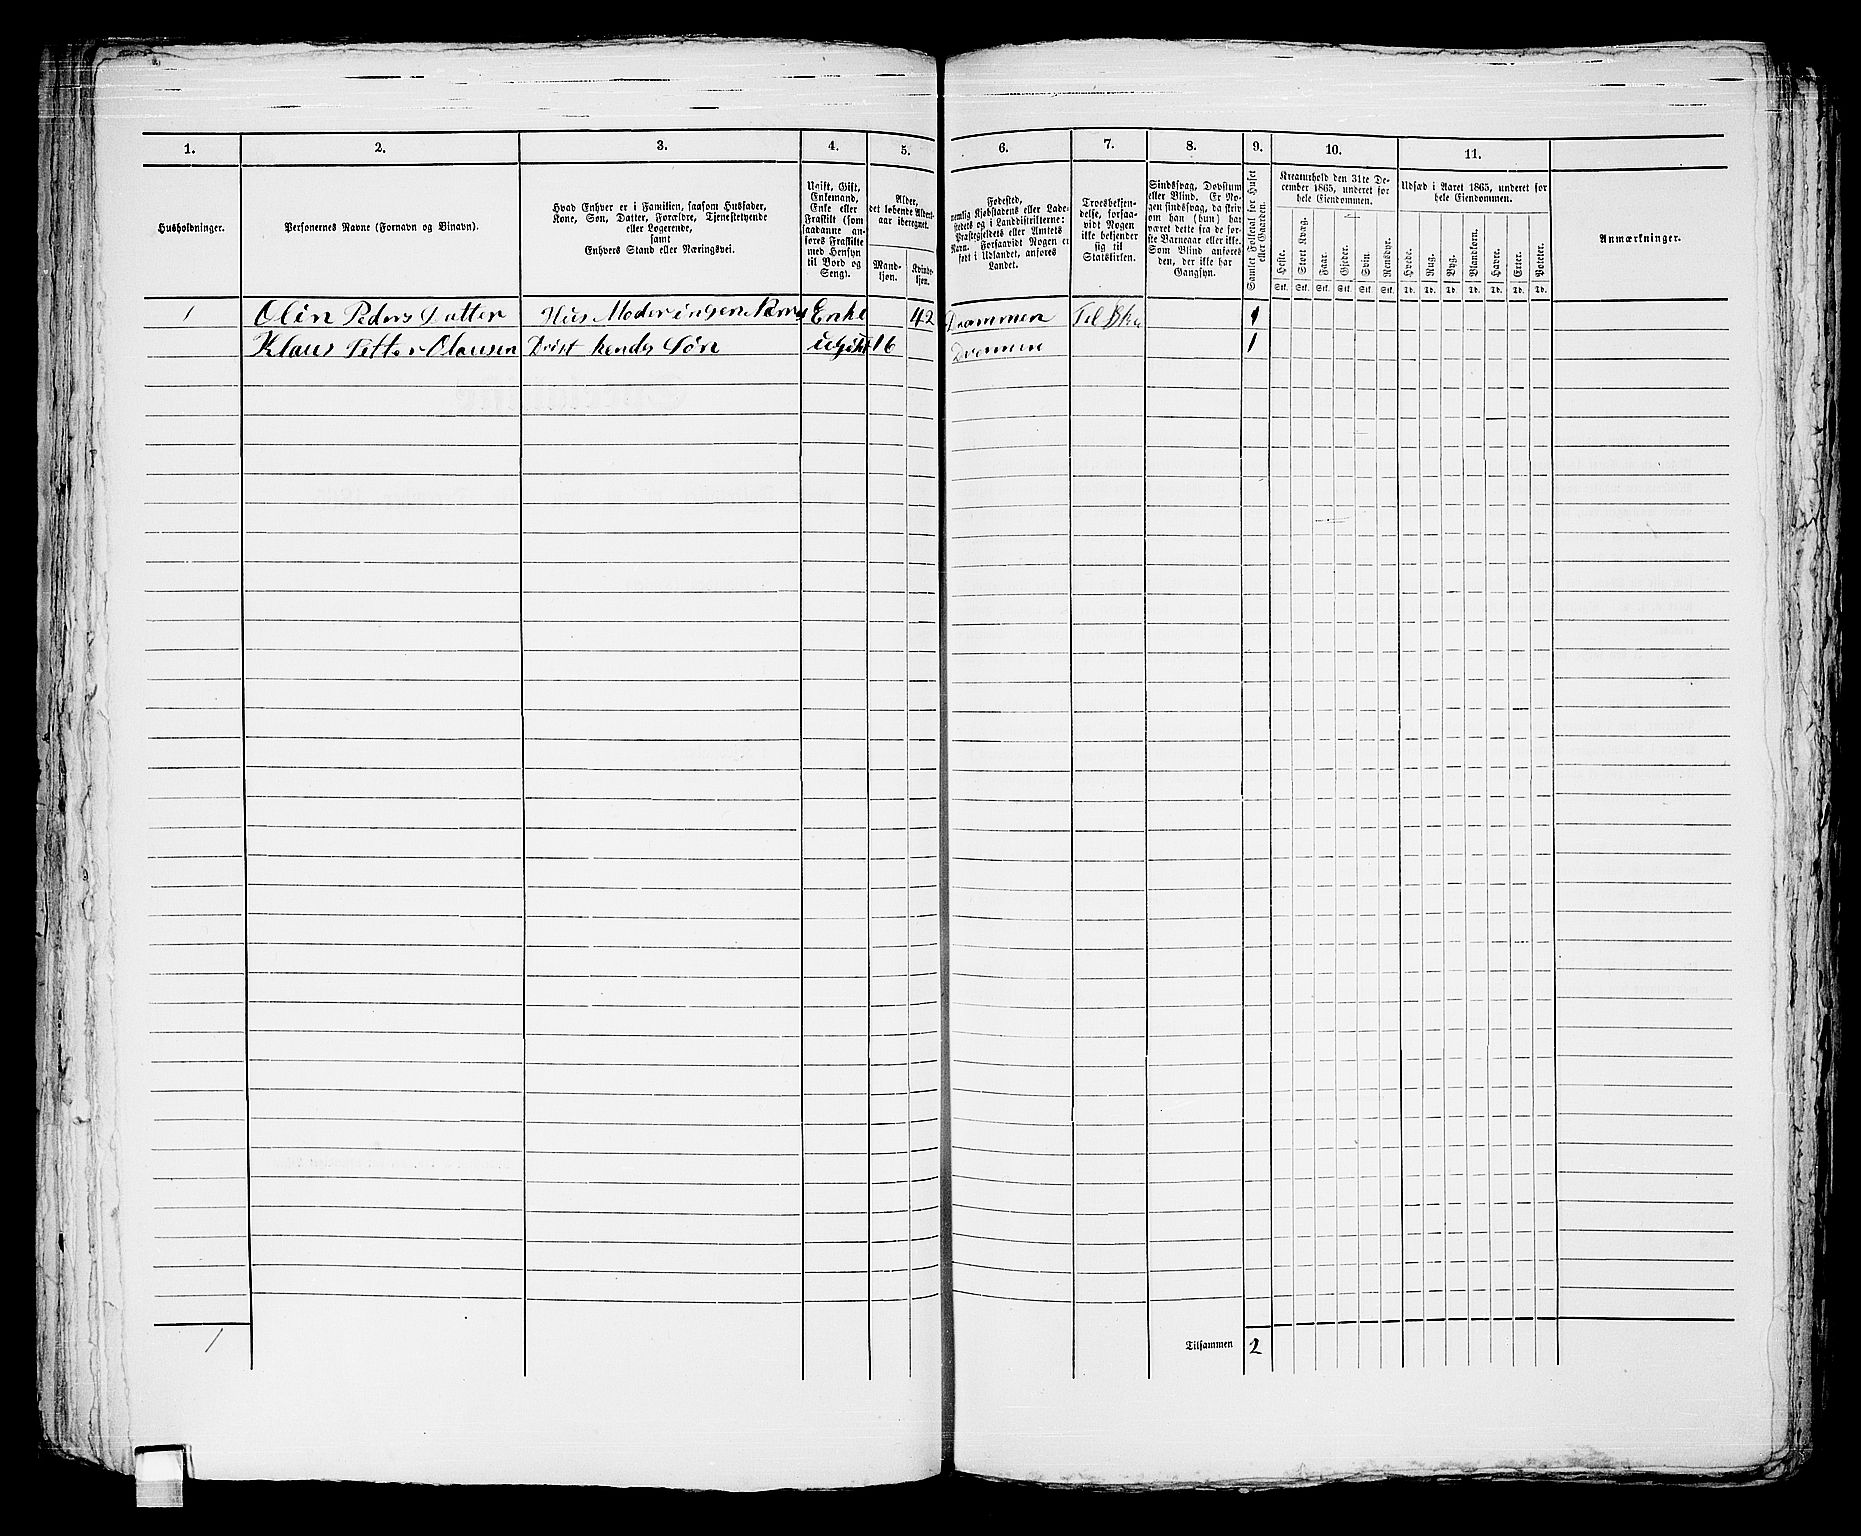 1.
2.
3.
4.
5.
6.
7.
8.
9.
10.
11.
Husholdninger.
Personernes Navne (Fornavn og Binavn).
Hvad Enhver er i Familien, saasom Husfader,
Kone, Søn, Datter, Forældre, Tjenestetyende
eller Logerende,
samt
Enhvers Stand eller Næringsvei.
Ugift, Gift,
Enkemand,
Enke eller
Fraskilt (som
saadanne an-
føres Fraskilte
med Hensyn
til Bord og
Seng).
Alder,
det løbende Alders-
aar iberegnet.
Mand-
kjøn.
Kvinde-
kjøn.
Fødested,
nemlig Kjøbstadens eller Lade-
stedets og i Landdistrikterne:
Præstegjeldets eller Amtets
Navn. Forsaavidt Nogen er
født i Udlandet, anføres
Landet.
Troesbekjen-
delse, forsaa-
vidt Nogen
ikke bekjender
sig til
Statskirken.
Sindssvag, Døvstum
eller Blind. Er No-
gen sindssvag, da skriv
om han (hun) har
været dette fra de før-
ste Barneaar eller ikke.
Som Blind anføres
den, der ikke har
Gangsyn.
Samlet Folketal for Huset
eller Gaarden.
Kreaturhold den 31te De-
cember 1865, underet for
hele Eiendommen.
Heste.
Stort Kvæg.
Faar.
Gjeder.
Svin.
Rensdyr.
Stk. Stk. Stk. Stk. Stk. Stk.
Udsæd i Aaret 1865, underet for
hele Eiendommen.
Hvede.
Rug.
Byg.
Blandkorn.
Havre.
Erter.
Poteter.
Td. Td. Td. Td. Td. Td. Td.
Anmærkninger.
1 Olin Peders Datter Hus Moder ingen Nærng Enke 42 Drammen 1
Klaus Petter Olausen kendes Søn ugift 16 Drammen 1
1
Tilsammen 2